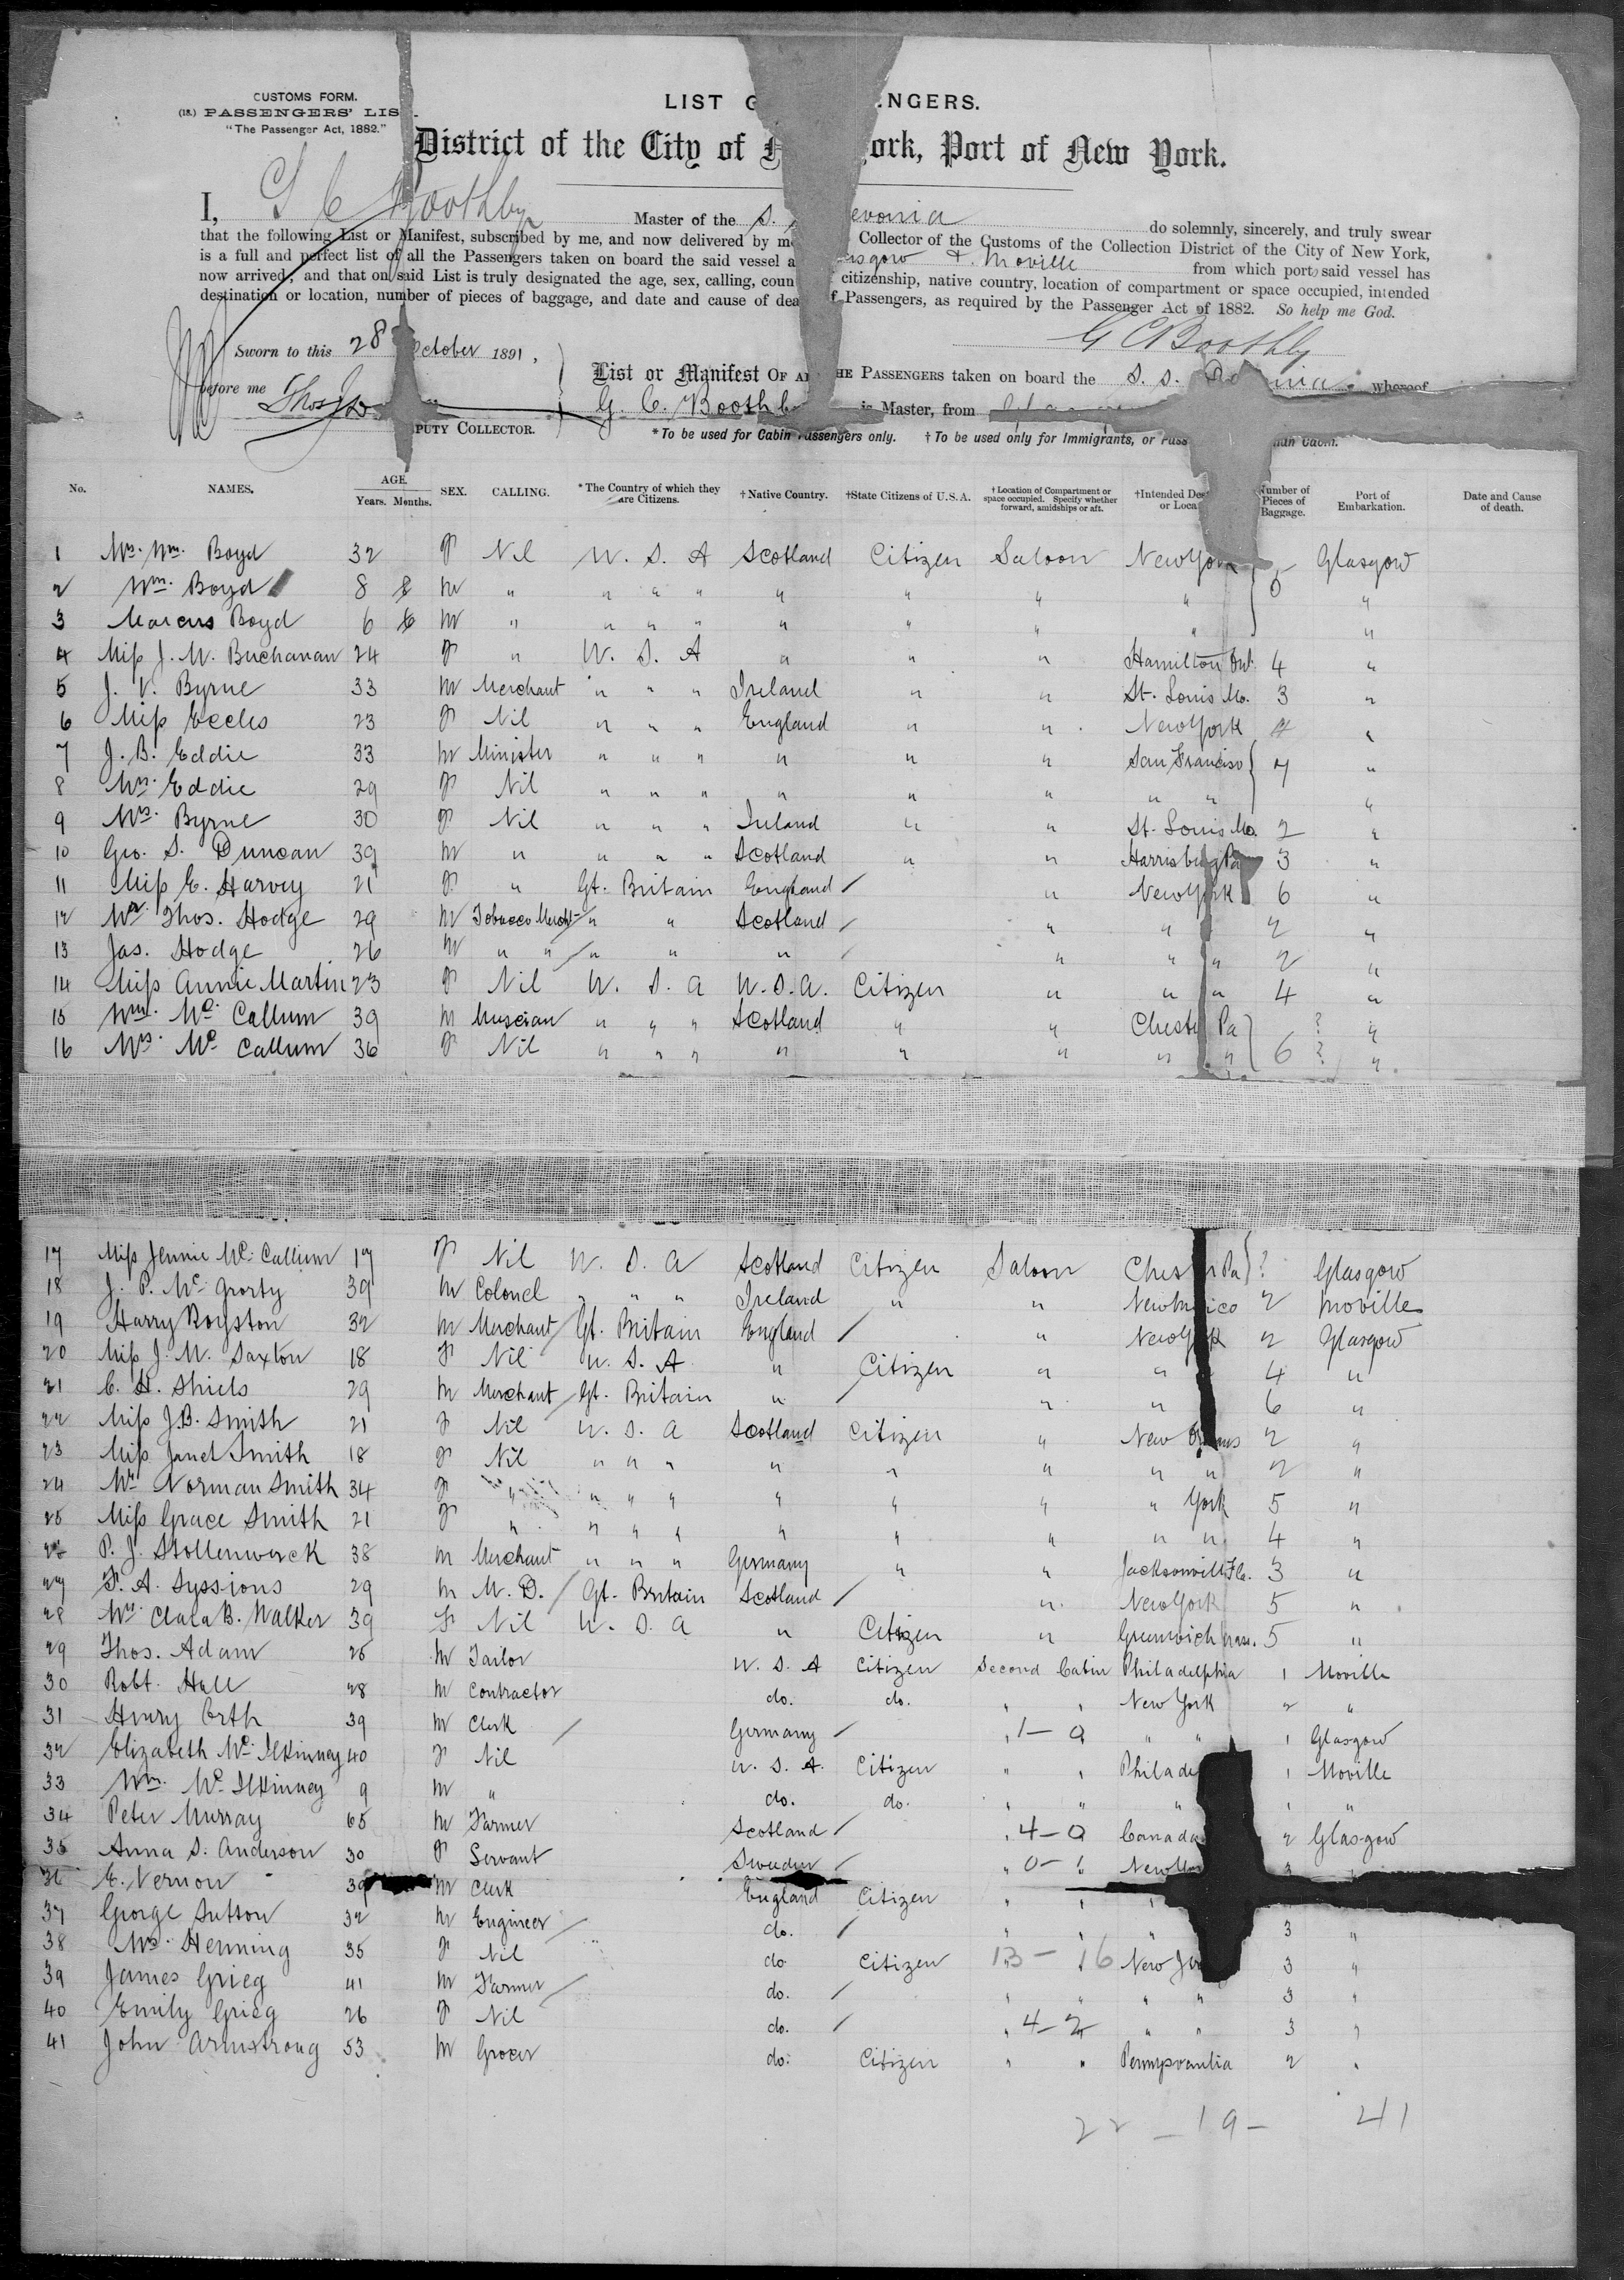 CUSTOMS FORM.
(18.) PASSENGERS' LIS
"The Passenger Act, 1882."
LIST ENGERS.
District of the City of ork, Port of New York.
I, G C Boothby Master of the S. evonia do solemnly, sincerely, and truly swear
that the following List or Manifest, subscribed by me, and now delivered by me Collector of the Customs of the Collection District of the City of New York,
is a full and perfect list of all the Passengers taken on board the said vessel a asgow & Moville from which port said vessel has
now arrived; and that on said List is truly designated the age, sex, calling, coun citizenship, native country, location of compartment or space occupied, intended
destination or location, number of pieces of baggage, and date and cause of dea f Passengers, as required by the Passenger Act of 1882. So help me God.
G C Boothby
Sworn to this 28 October 1891,
before me Thos
PUTY COLLECTOR.
List or Manifest OF A HE PASSENGERS taken on board the S. S. nia whereof
G. C. Boothby is Master, from
*To be used for Cabin Passengers only. †To be used only for Immigrants, or Pass han Cabin.
No. NAMES. AGE Years. Months. SEX. CALLING. *The Country of which they are Citizens. †Native Country. †State Citizens of U.S.A. †Location of Compartment or space occupied. Specify whether forward, amidships or aft. †Intended Des or Loca Number of Pieces of Baggage. Port of Embarkation. Date and Cause of death.
1 Mrs. Wm. Boyd 32 F Nil U. S. A Scotland Citizen Saloon New York 5 Glasgow
2 Wm. Boyd 8 M " " " " " " " " "
3 Marcus Boyd 6 M " " " " " " " " "
4 Miss J. M. Buchanan 24 F " U. S. A " " " Hamilton Ont. 4 "
5 J. V. Byrne 33 M Merchant " " " Ireland " " St. Louis Mo. 3 "
6 Miss Eccles 23 F Nil " " " England " " New York 4 "
7 J. B. Eddie 33 M Minister " " " " " " San Francisco 7 "
8 Mrs. Eddie 29 F Nil " " " " " " " " "
9 Mrs. Byrne 30 F Nil " " " Ireland " " St. Louis Mo. 2 "
10 Geo. S. Duncan 39 M " " " " Scotland " " Harrisburg Pa 3 "
11 Miss E. Harvey 21 F " Gt. Britain England / " New York 6 "
12 Mr. Thos. Hodge 29 M Tobacco Mercht / " " Scotland / " " 2 "
13 Jas. Hodge 26 M " " / " " " / " " " 2 "
14 Miss Annie Martin 23 F Nil U. S. A U.S.A. Citizen " " " 4 "
15 Wm. Mc. Callum 39 M Musician " " " Scotland " " Chester Pa ? "
16 Mrs. Mc Callum 36 F Nil " " " " " " " " 6 ? "
17 Miss Jennie Mc. Callum 17 F Nil U. S. A Scotland Citizen Saloon Ches Pa ? Glasgow
18 J. P. Mc. Grorty 39 M Colonel " " " Ireland " " New M ico 2 Moville
19 Harry Royston 32 M Merchant / Gt. Britain England / " New York 2 Glasgow
20 Miss J. M. Saxton 18 F Nil U. S. A " Citizen " " 4 "
21 C. H. Shiels 29 M Merchant / Gt. Britain " / " " 6 "
22 Miss J.B. Smith 21 F Nil U. S. A Scotland Citizen " New Orleans 2 "
23 Miss Janet Smith 18 F Nil " " " " " " " " 2 "
24 Mrs Norman Smith 34 F " " " " " " " " York 5 "
25 Miss Grace Smith 21 F " " " " " " " " " 4 "
26 P. J. Stollenwerck 38 M Merchant " " " Germany " " Jacksonville Fla. 3 "
27 F. A. Syssions 29 M M. D. / Gt. Britain Scotland / " New York 5 "
28 Mrs. Clara B. Walker 39 F Nil U. S. A " Citizen " Greenwich Mass. 5 "
29 Thos. Adam 25 M Tailor U. S. A Citizen Second Cabin Philadelphia 1 Moville
30 Robt. Hall 28 M Contractor do. do. " " New York 2 "
31 Henry Orth 39 M Clerk / Germany / " 1-0 " " 1 Glasgow
32 Elizabeth Mc. Ilkinney 40 F Nil U. S. A. Citizen " " Philade 1 Moville
33 Wm. Mc. Ilkinney 9 M " do. do. " " " 1 "
34 Peter Murray 65 M Farmer Scotland / " 4-0 Canada 2 Glasgow
35 Anna S. Anderson 30 F Servant Sweden / " 0-1 New 3 "
36 E. Vernon 39 M Clerk England Citizen " " "
37 George Sutton 32 M Engineer / do. / " " " 3 "
38 Mrs. Henning 35 F Nil do Citizen 13-16 New Jer 3 "
39 James Grieg 41 M Farmer / do. / " " " " 3 "
40 Emily Grieg 26 F Nil do. / " 4-2 " " 3 "
41 John Armstrong 53 M Grocer do. Citizen " " Pennysvanlia 2 "
22 - 19 - 41